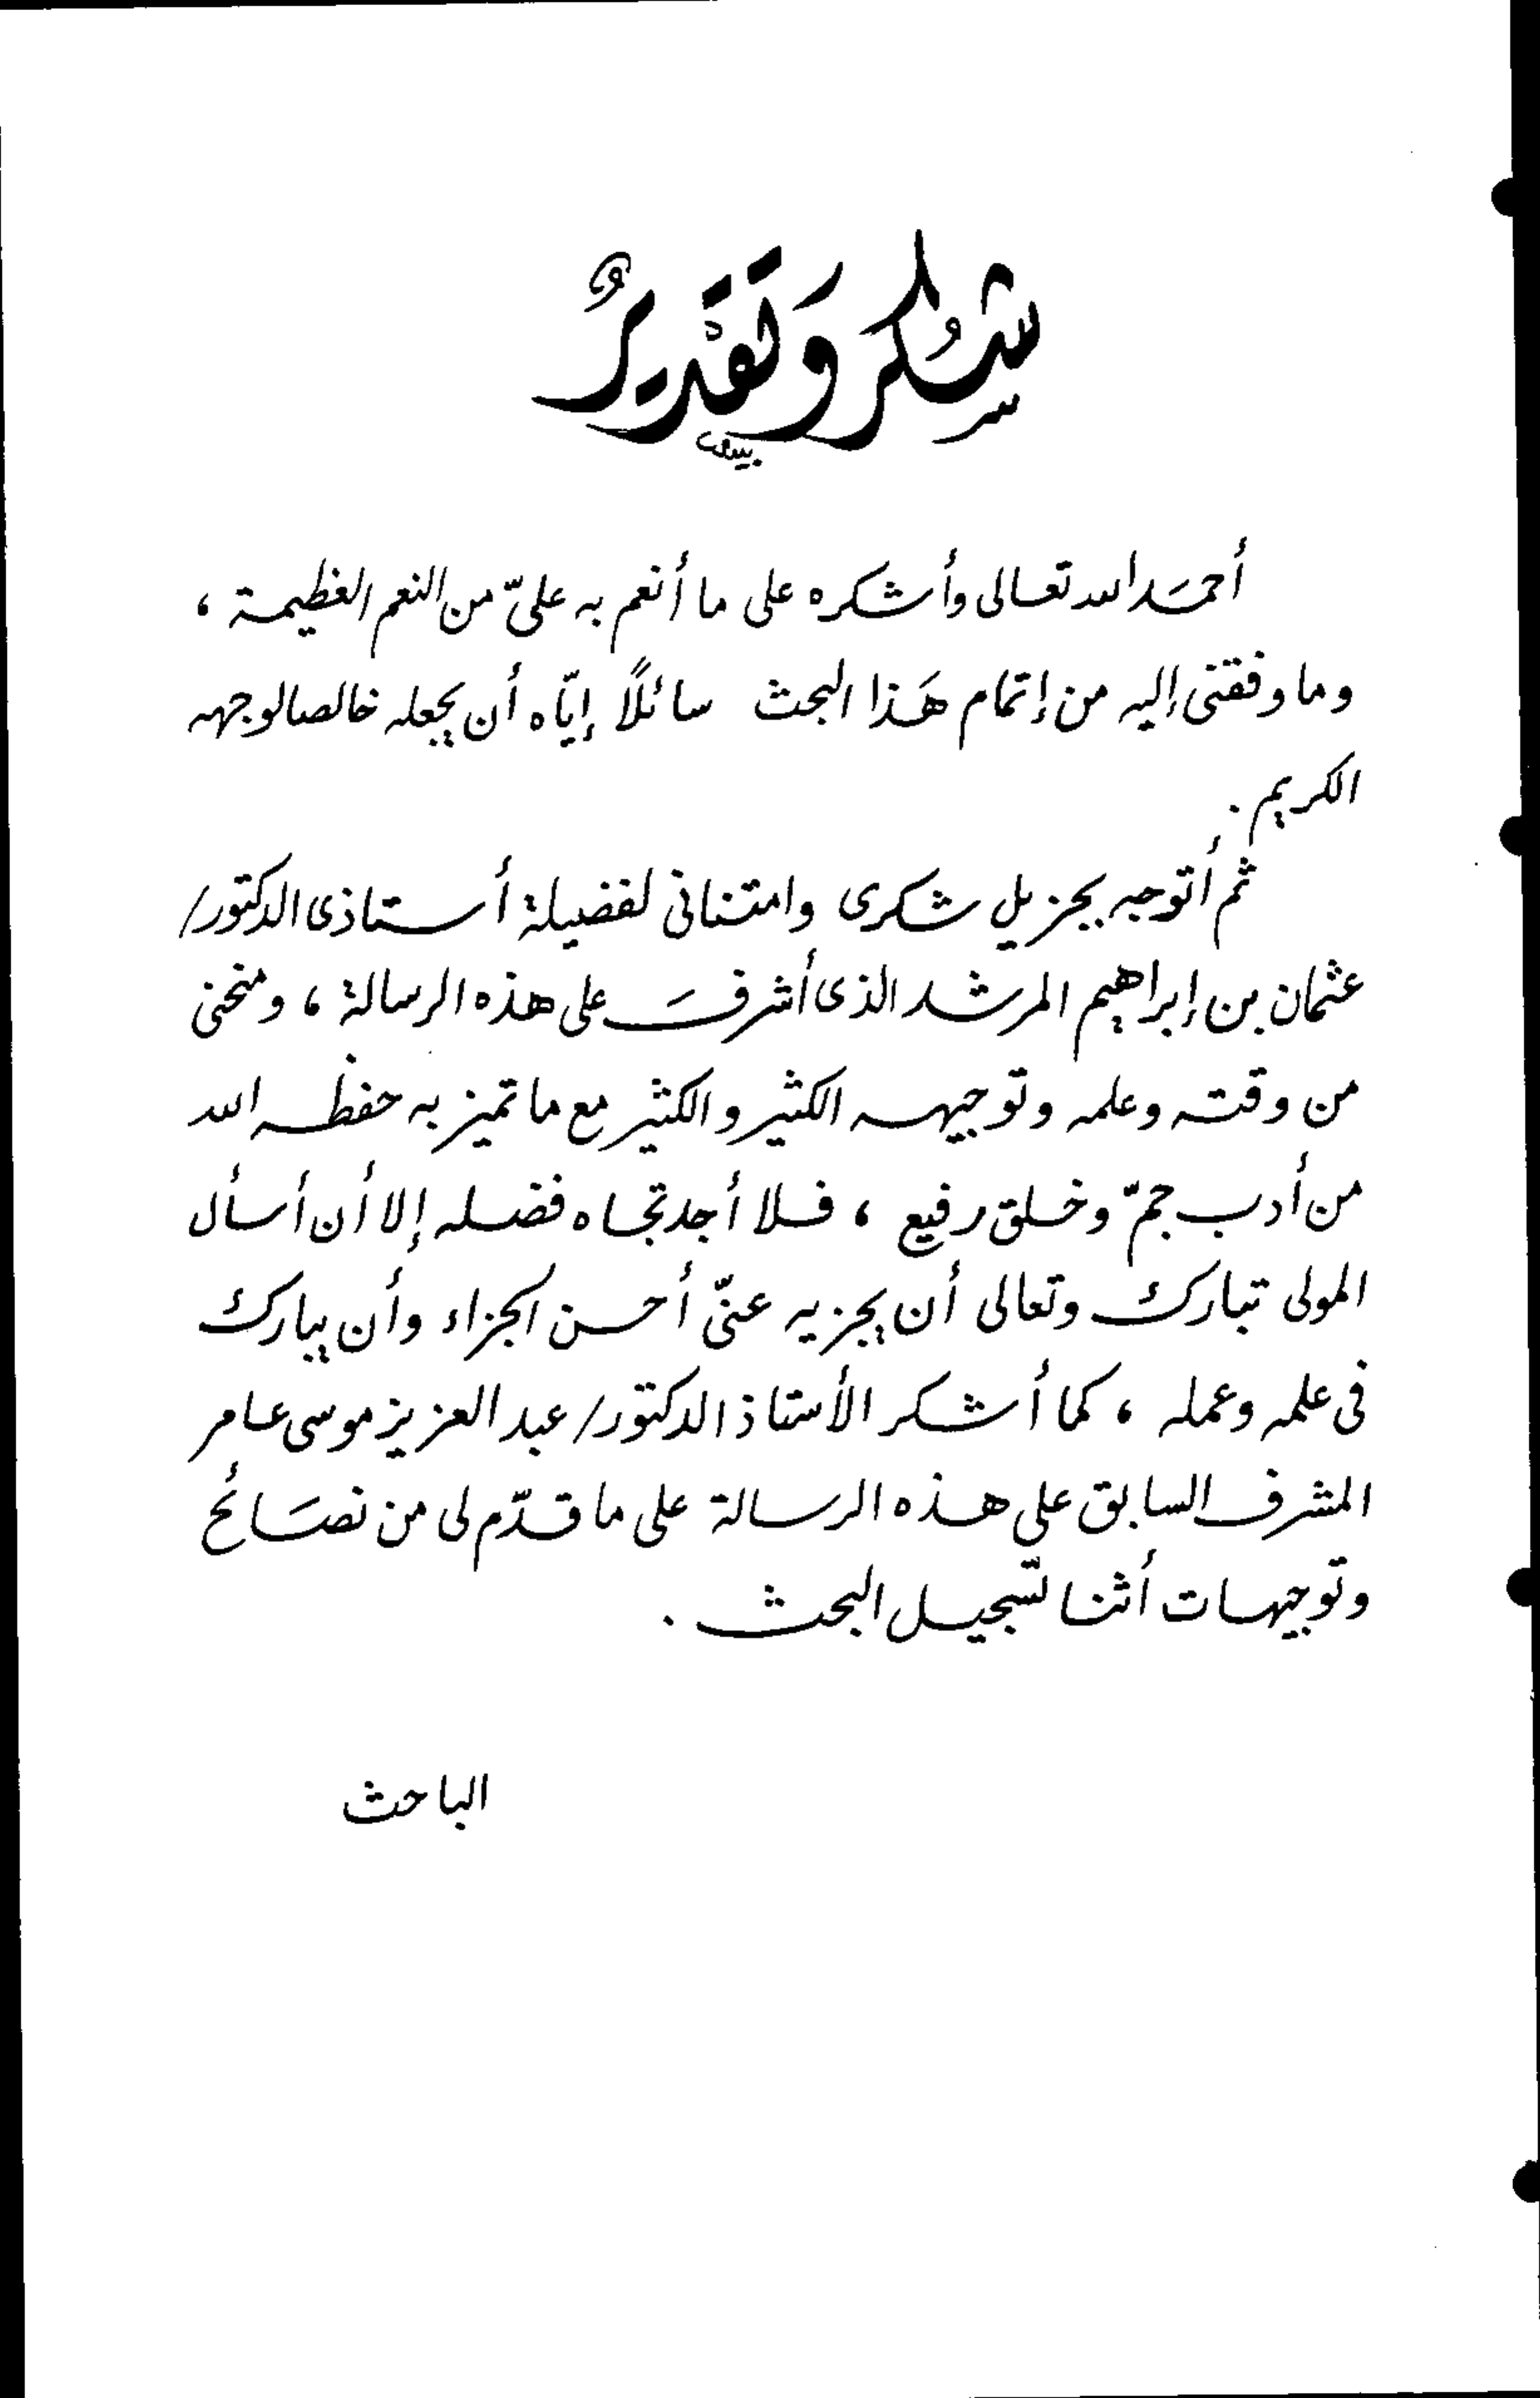 شُكر وَتَقْدِيرٌ
أحمَد الله تعالى وأشكره على ما أنعم به عليّ من النعم العظيمة ،
وما وفقنى إليه من إتمام هَذا البحث سائلًا إيّاه أن يجعله خالصا لوجهه
الكريم .
ثم أتوجه بجزيل شكرى وامتنانى لفضيلة أستاذى الدكتور/
عثمان بن إبراهيم المرشد الذى أشرفَ على هذه الرسالة ، ومنحنى
من وقته وعلمه وتوجيهه الكثير والكثير مع ما تميز به حفظه الله
من أدب جمّ وخلق رفيع ، فلا أجد تجاه فضله إلا أن أسأل
المولى تبارك وتعالى أن يجزيه عنّى أحسن الجزاء وأن يبارك
فى علمه وعمله ، كما أشكر الأستاذ الدكتور/ عبد العزيز موسى عامر
المشرف السابق على هذه الرسالة على ما قدّم لى من نصَائح
وتوجيهات أثنا تسّجيل البحث .
الباحث